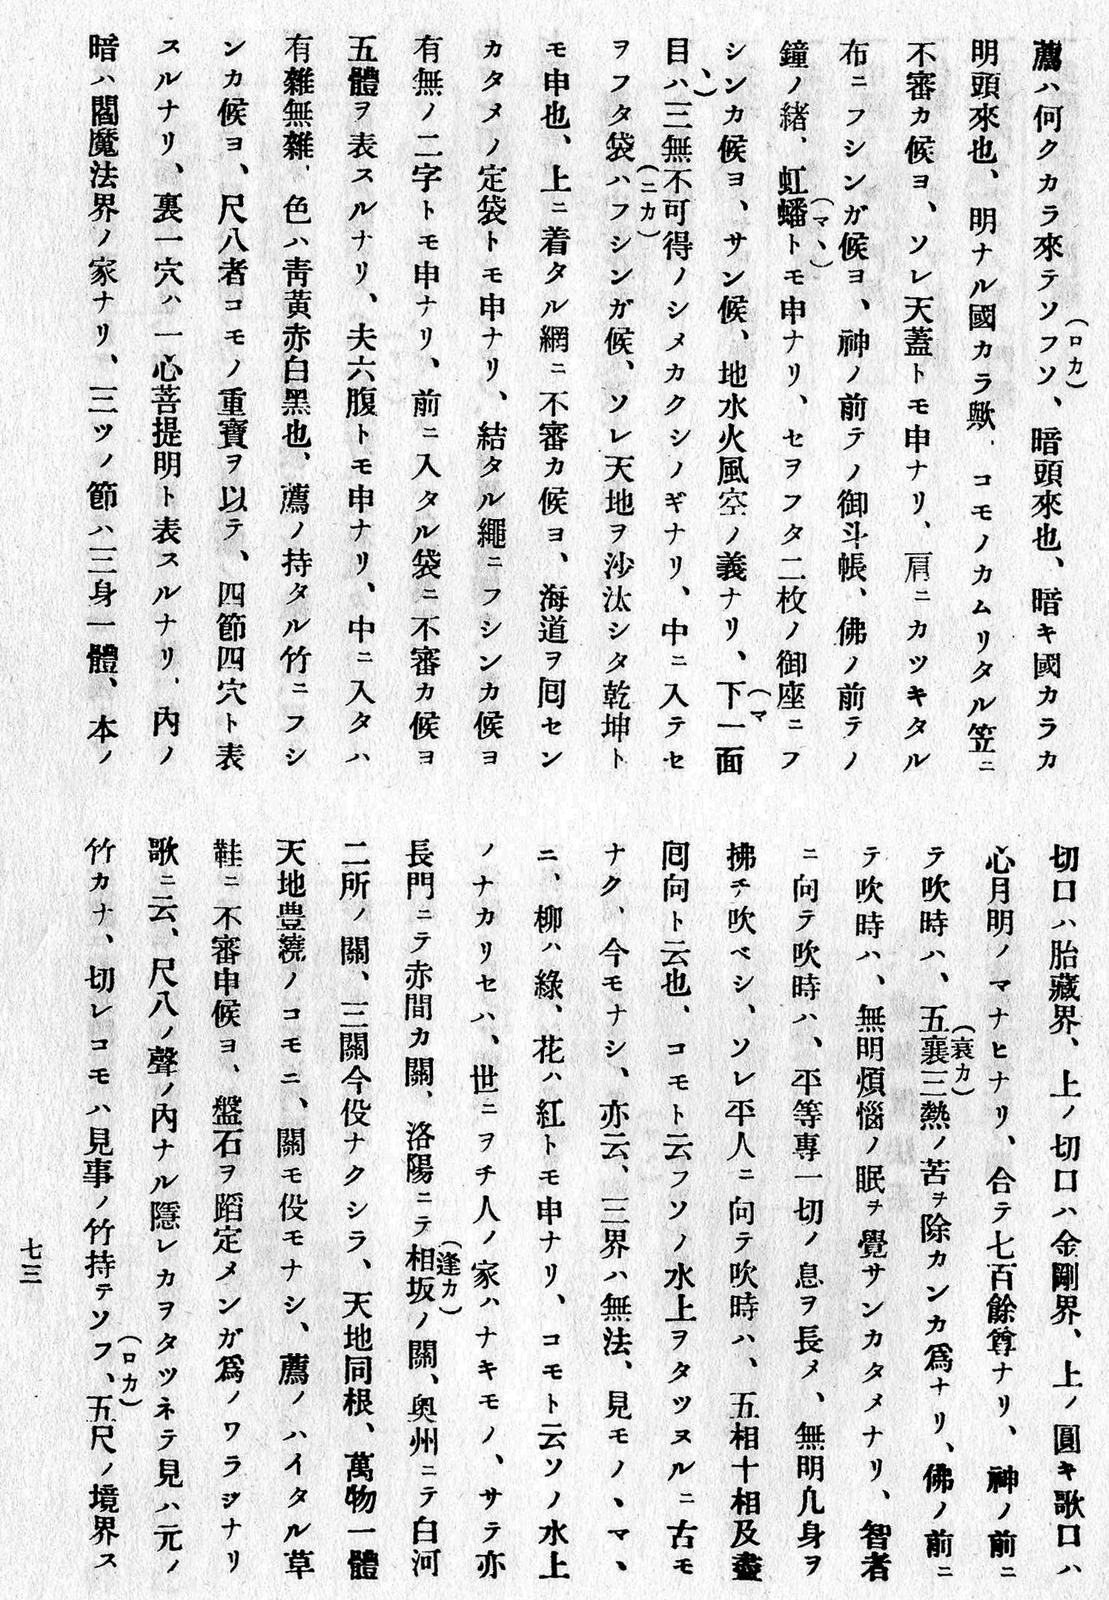 薦ハ何クカラ來テソフソ、暗頭來也、暗キ國カラカ
(ロカ)
明頭來也、明ナル國カラ歟、コモノカムリタル笠ニ
不審カ候ヨ、ソレ天蓋トモ申ナリ、肩ニカツキタル
布ニフシンガ候ヨ、神ノ前テノ御斗帳、佛ノ前テノ
鐘ノ緒、虹蟠トモ申ナリ、セヲフタ二枚ノ御座ニフ
(マヽ)
シンカ候ヨ、サン候、地水火風空ノ義ナリ、下一面
(マヽ)
目ハ三無不可得ノシメカクシノギナリ、中ニ入テセ
(ニカ)
ヲフタ袋ハフシンガ候、ソレ天地ヲ沙汰シタ乾坤ト
モ申也、上ニ着タル網ニ不審カ候ヨ、海道ヲ囘セン
カタメノ定袋トモ申ナリ、結タル繩ニフシンカ候ヨ
有無ノ二字トモ申ナリ、前ニ入タル袋ニ不審カ候ヨ
五體ヲ表スルナリ、夫六腹トモ申ナリ、中ニ入タハ
有雜無雜、色ハ靑黃赤白黑也、薦ノ持タル竹ニフシ
ンカ候ヨ、尺八者コモノ重寶ヲ以テ、四節四穴ト表
スルナリ、裏一穴ハ一心菩提明ト表スルナリ、內ノ
暗ハ閻魔法界ノ家ナリ、三ツノ節ハ三身一體、本ノ
切口ハ胎藏界、上ノ切口ハ金剛界、上ノ圓キ歌口ハ
心月明ノマナヒナリ、合テ七百餘尊ナリ、神ノ前ニ
テ吹時ハ、五襄三熱ノ苦ヲ除カンカ爲ナリ、佛ノ前ニ
(衰カ)
テ吹時ハ、無明煩惱ノ眠ヲ覺サンカタメナリ、智者
ニ向テ吹時ハ、平等專一切ノ息ヲ長メ、無明几身ヲ
拂チ吹ベシ、ソレ平人ニ向テ吹時ハ、五相十相及盡
囘向ト云也、コモト云フソノ水上ヲタツヌルニ古モ
ナク、今モナシ、亦云、三界ハ無法、見モノヽマヽ
ニ、柳ハ綠、花ハ紅トモ申ナリ、コモト云ソノ水上
ノナカリセハ、世ニヲチ人ノ家ハナキモノ、サテ亦
長門ニテ赤間カ關、洛陽ニテ相坂ノ關、奧州ニテ白河
(逢カ)
二所ノ關、三關今伇ナクシラ、天地同根、萬物一體
天地豊繞ノコモニ、關モ伇モナシ、薦ノハイタル草
鞋ニ不審申候ヨ、盤石ヲ蹈定メンガ爲ノワラジナリ
歌ニ云、尺八ノ聲ノ內ナル隱レカヲタツネテ見ハ元ノ
竹カナ、切レコモハ見事ノ竹持テソフ、五尺ノ境界ス
(ロカ)
七三